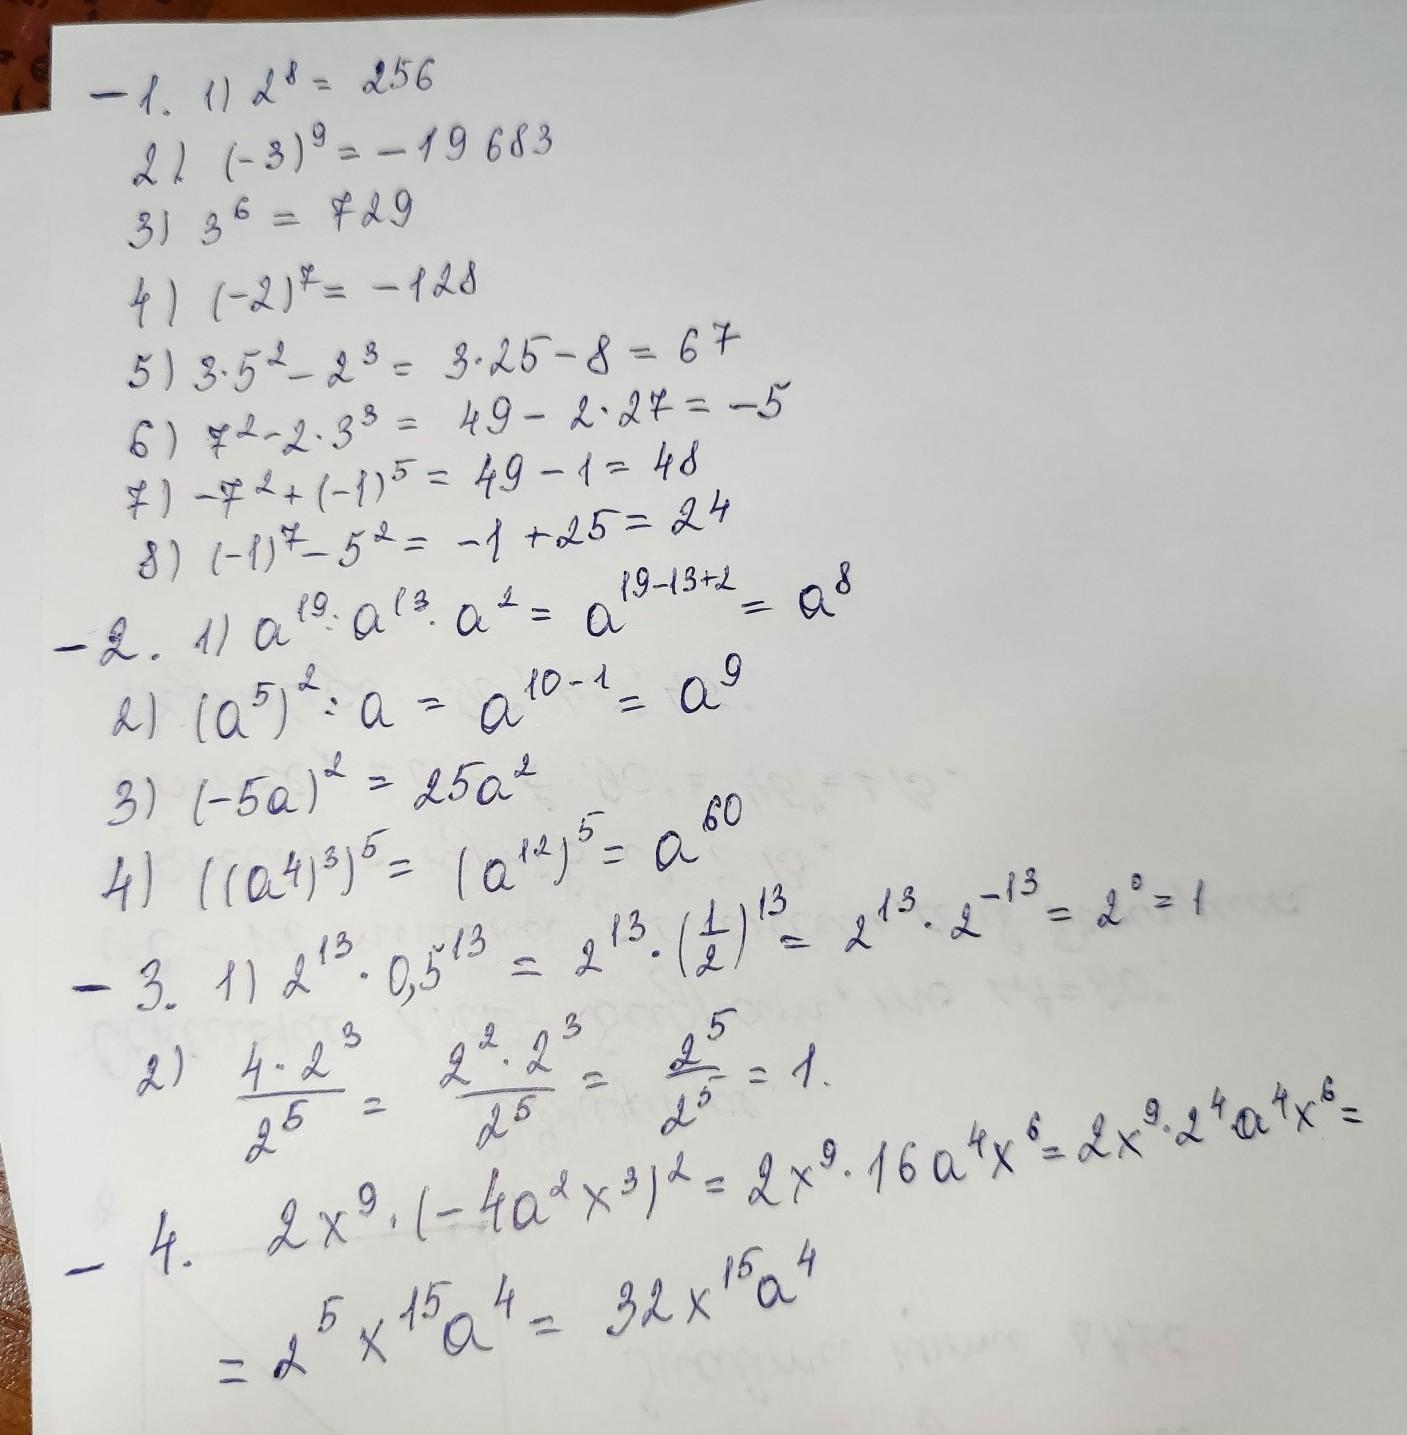 - 1. 1) 2⁸ = 256
2) (-3)⁹ = -19 683
3) 3⁶ = 729
4) (-2)⁷ = -128
5) 3·5² - 2³ = 3·25 - 8 = 67
6) 7² - 2·3³ = 49 - 2·27 = -5
7) -7² + (-1)⁵ = 49 - 1 = 48
8) (-1)⁷ - 5² = -1 + 25 = 24
- 2. 1) a¹⁹ : a¹³ · a² = a¹⁹⁻¹³⁺² = a⁸
2) (a⁵)² : a = a¹⁰⁻¹ = a⁹
3) (-5a)² = 25a²
4) ((a⁴)³)⁵ = (a¹²)⁵ = a⁶⁰
- 3. 1) 2¹³ · 0,5¹³ = 2¹³ · (1/2)¹³ = 2¹³ · 2⁻¹³ = 2⁰ = 1
2) (4 · 2³)/2⁵ = (2² · 2³)/2⁵ = 2⁵/2⁵ = 1.
- 4. 2x⁹ · (-4a²x³)² = 2x⁹ · 16a⁴x⁶ = 2x⁹ · 2⁴a⁴x⁶ =
= 2⁵x¹⁵a⁴ = 32x¹⁵a⁴